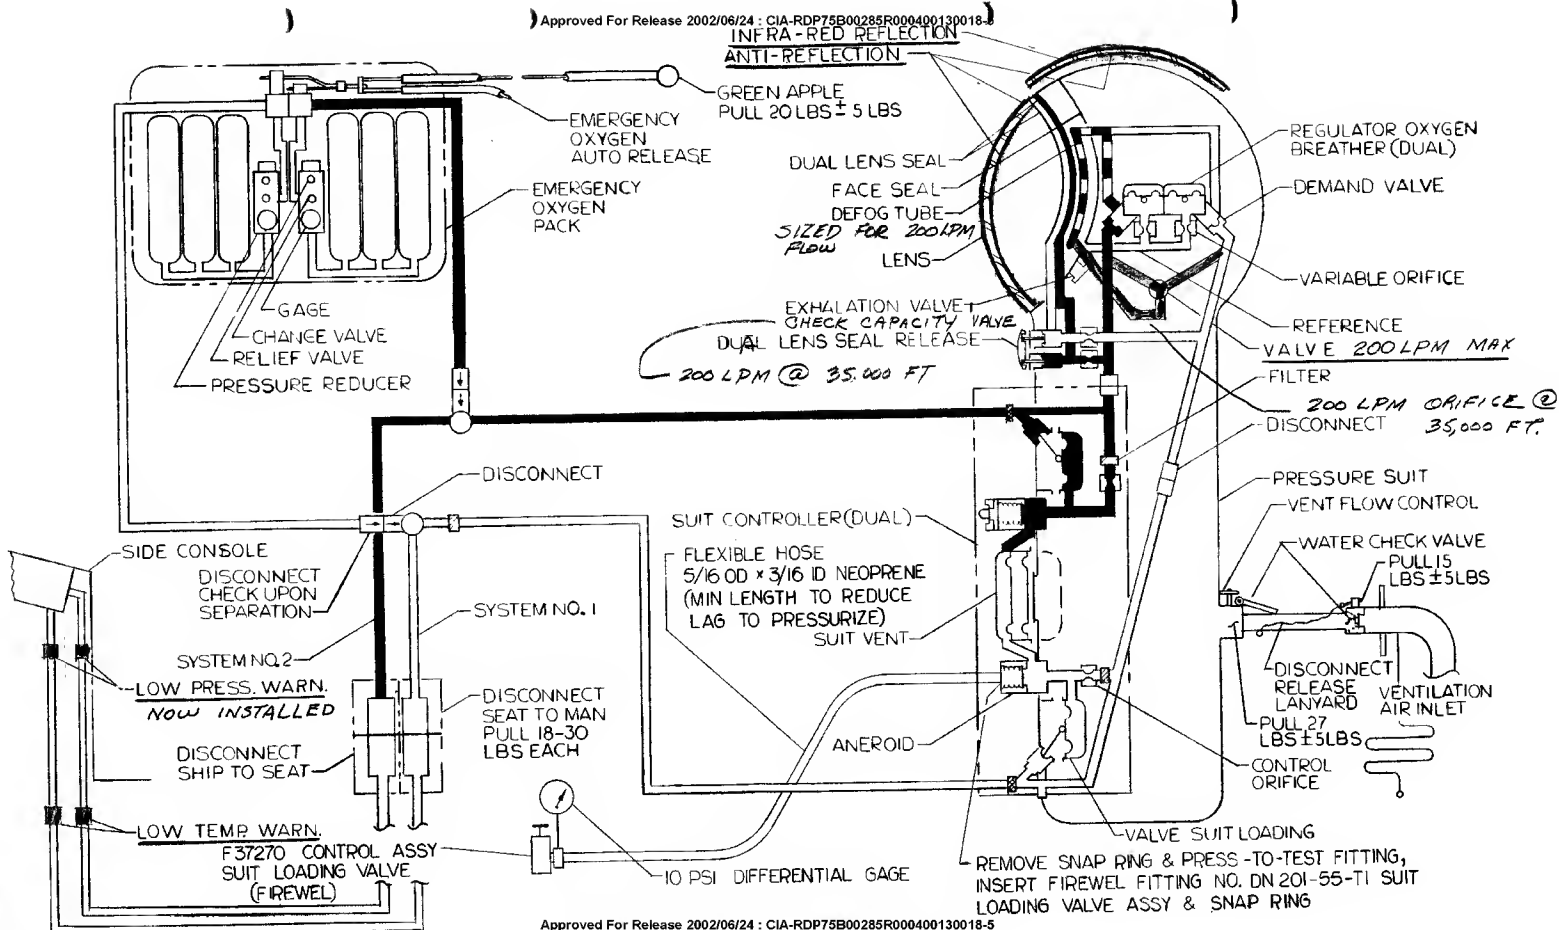 Approved For Release 2002/06/24 : CIA-RDP75B00285R000400130018-5
INFRA-RED REFLECTION
ANTI-REFLECTION
GREEN APPLE
PULL 20 LBS ± 5 LBS
EMERGENCY
OXYGEN
AUTO RELEASE
EMERGENCY
OXYGEN
PACK
GAGE
CHANGE VALVE
RELIEF VALVE
PRESSURE REDUCER
DUAL LENS SEAL
FACE SEAL
DEFOG TUBE
SIZED FOR 200 LPM
FLOW
LENS
EXHALATION VALVE
CHECK CAPACITY VALVE
DUAL LENS SEAL RELEASE
200 LPM @ 35,000 FT
REGULATOR OXYGEN
BREATHER (DUAL)
DEMAND VALVE
VARIABLE ORIFICE
REFERENCE
VALVE 200 LPM MAX
FILTER
200 LPM ORIFICE @
35,000 FT.
DISCONNECT
PRESSURE SUIT
VENT FLOW CONTROL
WATER CHECK VALVE
PULL 15
LBS ± 5 LBS
DISCONNECT
SUIT CONTROLLER (DUAL)
FLEXIBLE HOSE
5/16 OD × 3/16 ID NEOPRENE
(MIN LENGTH TO REDUCE
LAG TO PRESSURIZE)
SUIT VENT
SIDE CONSOLE
DISCONNECT
CHECK UPON
SEPARATION
SYSTEM NO. 1
SYSTEM NO. 2
LOW PRESS. WARN.
NOW INSTALLED
DISCONNECT
SEAT TO MAN
PULL 18-30
LBS EACH
DISCONNECT
SHIP TO SEAT
ANEROID
DISCONNECT
RELEASE
LANYARD
VENTILATION
AIR INLET
PULL 27
LBS ± 5 LBS
CONTROL
ORIFICE
LOW TEMP. WARN.
F37270 CONTROL ASSY
SUIT LOADING VALVE
(FIREWEL)
10 PSI DIFFERENTIAL GAGE
VALVE SUIT LOADING
REMOVE SNAP RING & PRESS-TO-TEST FITTING,
INSERT FIREWEL FITTING NO. DN 201-55-T1 SUIT
LOADING VALVE ASSY & SNAP RING
Approved For Release 2002/06/24 : CIA-RDP75B00285R000400130018-5